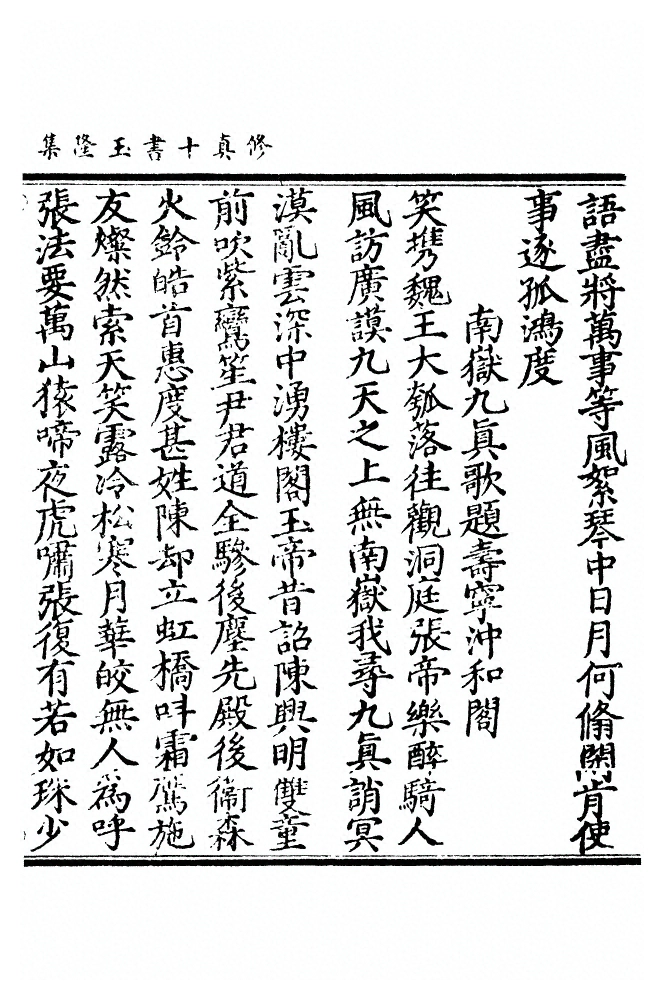 修真十書玉隆集
語盡將萬事等風絮琴中日月何脩閑肯使
事逐孤鴻度
南嶽九眞歌題壽寧沖和閣
笑携魏王大瓠落往觀洞庭張帝樂醉騎人
風訪廣謨九天之上無南嶽我尋九眞誚冥
漠亂雲深中湧樓閣玉帝昔詔陳興明雙童
前吹紫鸞笙尹君道全驂後塵先殿後衛森
火鈴皓首惠度甚姓陳却立虹橋叫霜鶯施
友燦然索天笑露冷松寒月華皎無人爲呼
張法要萬山猿啼夜虎嘯張復有若如珠少